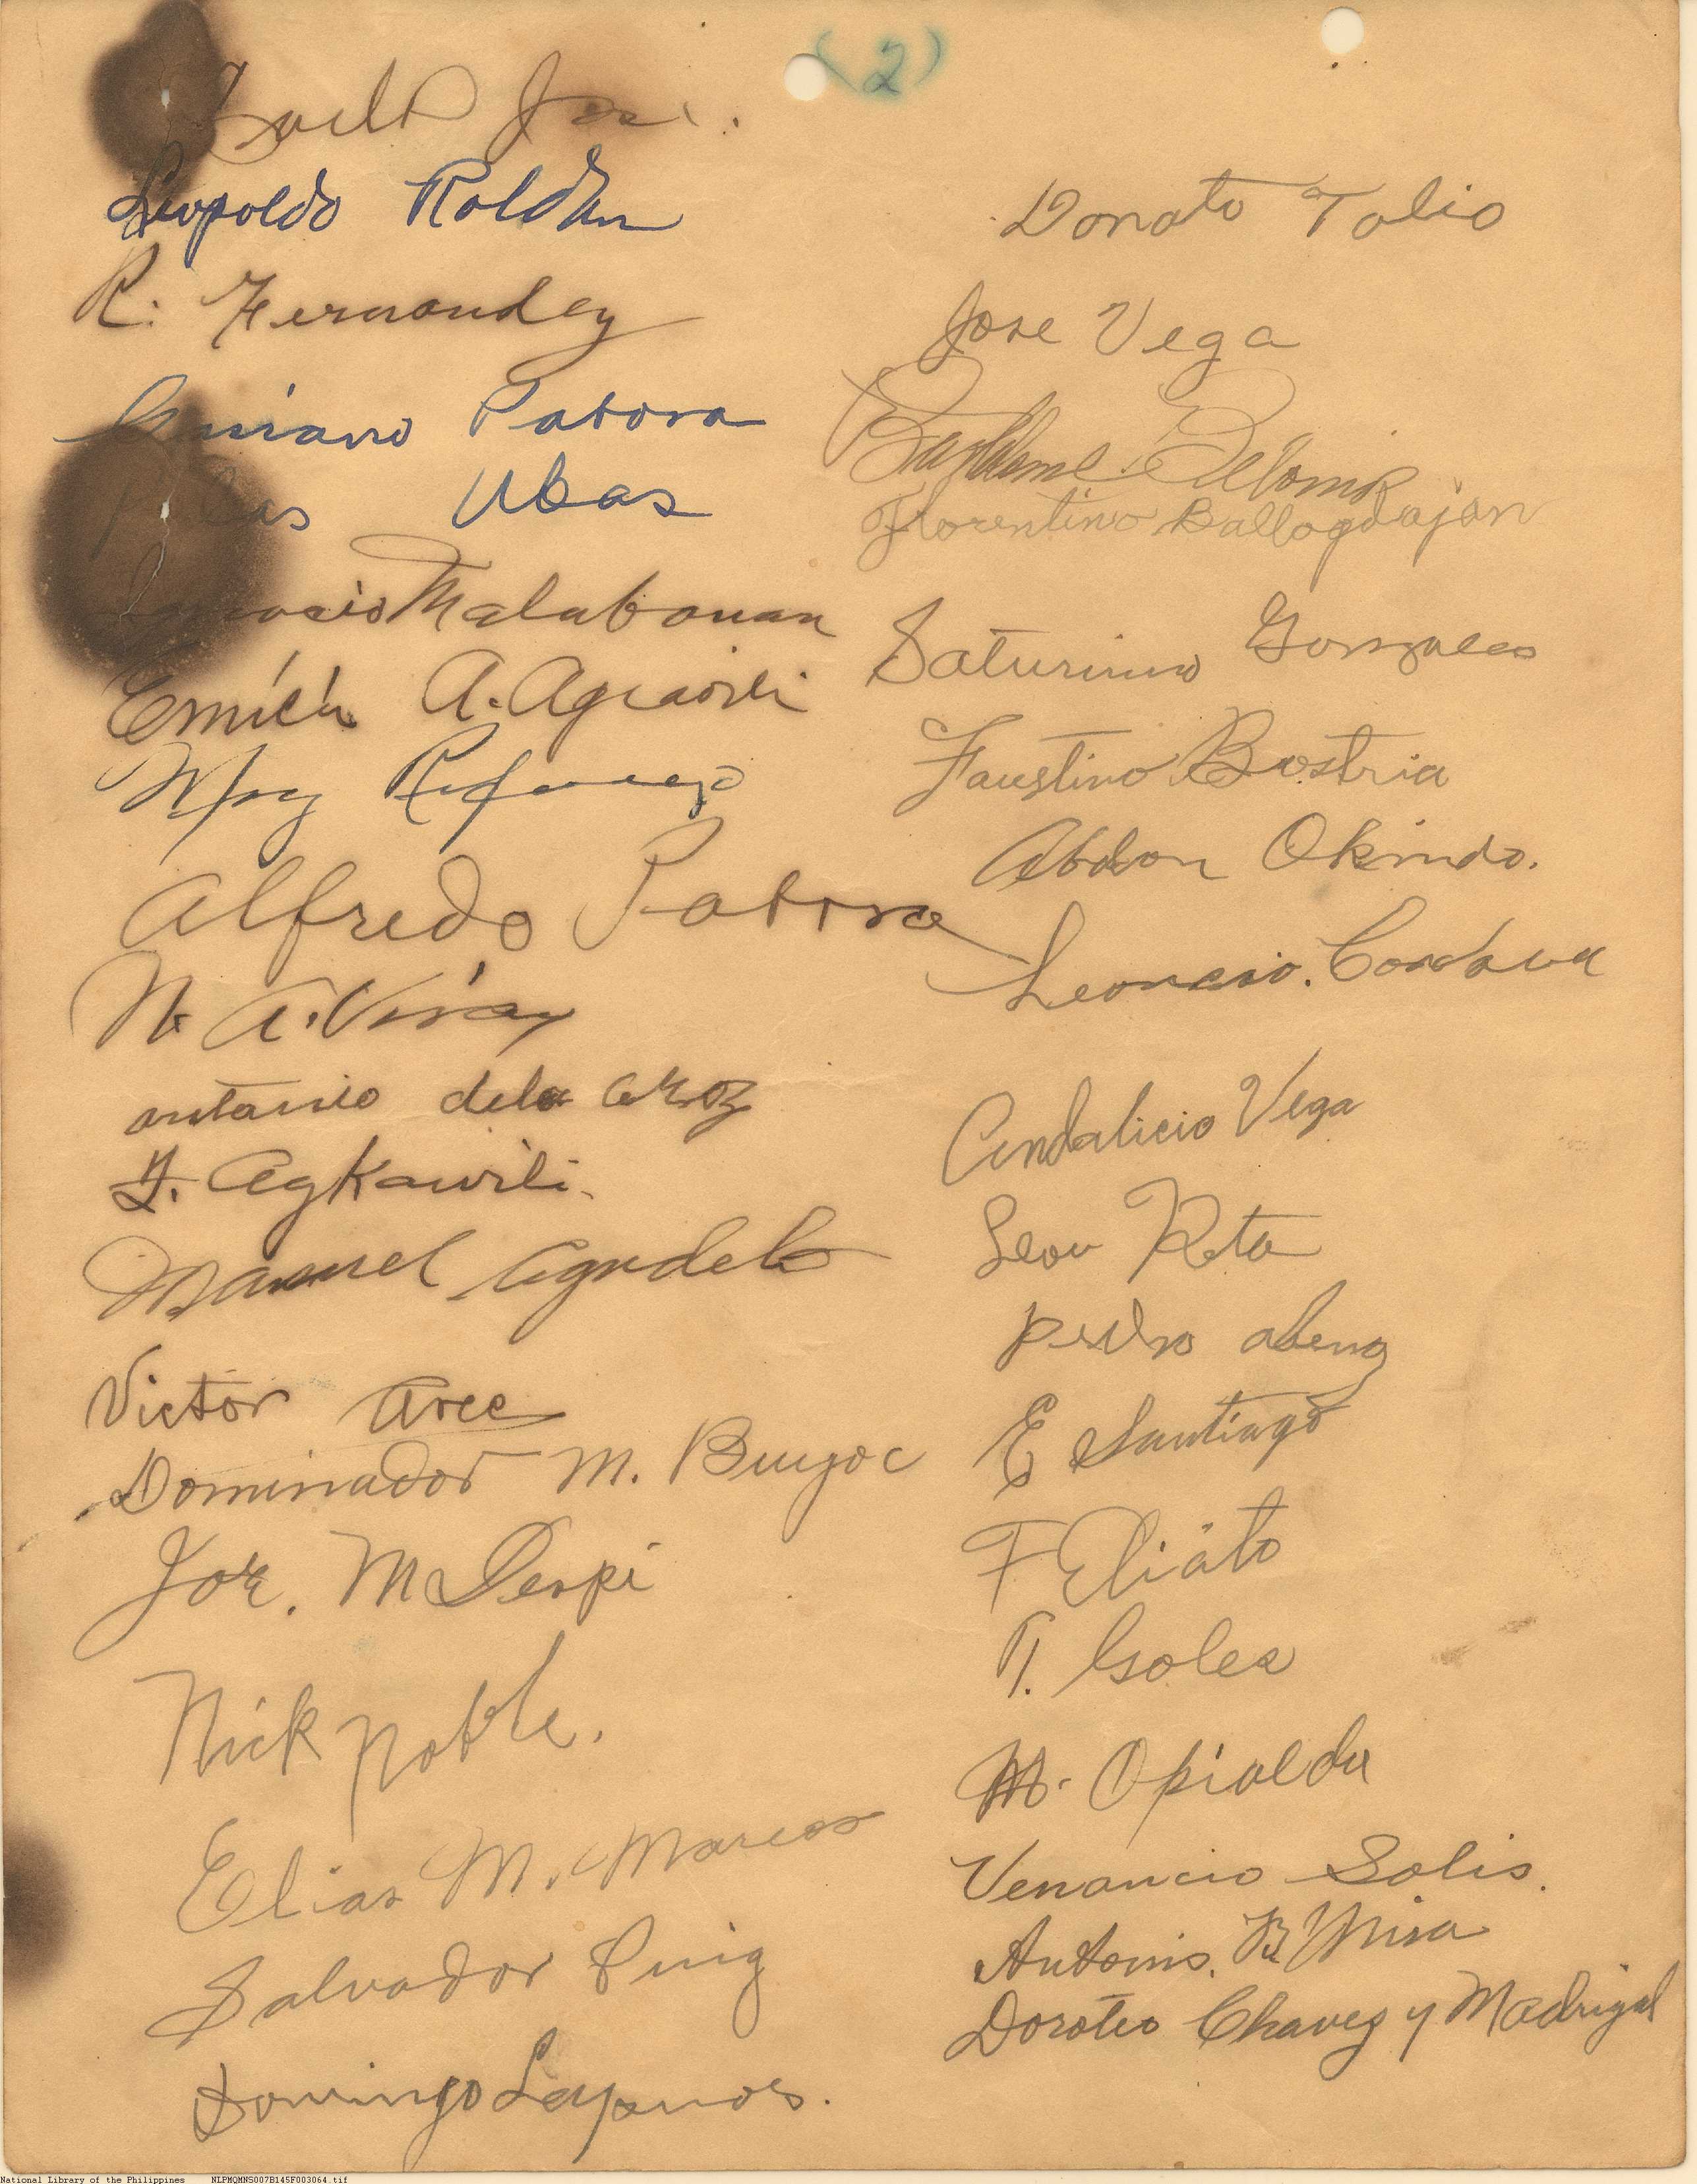 (2)
Leopoldo Roldan
R. Fernandez
Patova
Ubas
Malabanan
A. Agcaoili
Alfredo Patova
N. A. Viray
antonio dela cruz
F. Agkawili.
Manuel Agudelo
Victor Arce
Dominador M. Buyoc
Joe. M Despi
Nick Noble.
Elias M. Marcos
Salvador Puig
Domingo
Donato Tolio
Jose Vega
Florentino Ballogdajan
Saturnino Gonzales
Faustino Bostria
Abdon Okindo.
Leoncio. Cordova
Andalicio Vega
Leon Reta
pedro abeng
E Santiago
F Eliato
T. Isoles
M. Opialda
Venancio Solis.
Antonio. B. Misa
Doroteo Chavez y Madrigal
National Library of the Philippines NLPMQMNS007B145F003064.tif